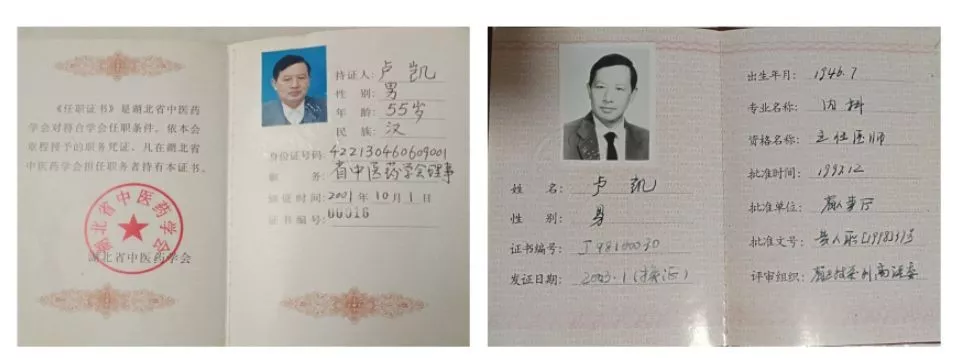 《任职证书》是湖北省中医药
学会对符合学会任职条件，依本会
章程授予的职务凭证，凡在湖北省
中医药学会担任职务者持有本证书。
湖北省中医药学会
湖北省中医药学会
持证人：卢凯
性 别：男
年 龄：55岁
民 族：汉
身份证号码：422130460609001
职 务：省中医药学会理事
颁证时间：2001年10月1日
证书编号：00016
姓 名：卢凯
性 别：男
证书编号：J98100030
发证日期：2003.1（换证）
出生年月：1946.7
专业名称：内科
资格名称：主任医师
批准时间：1997.12
批准单位：
批准文号：
评审组织：